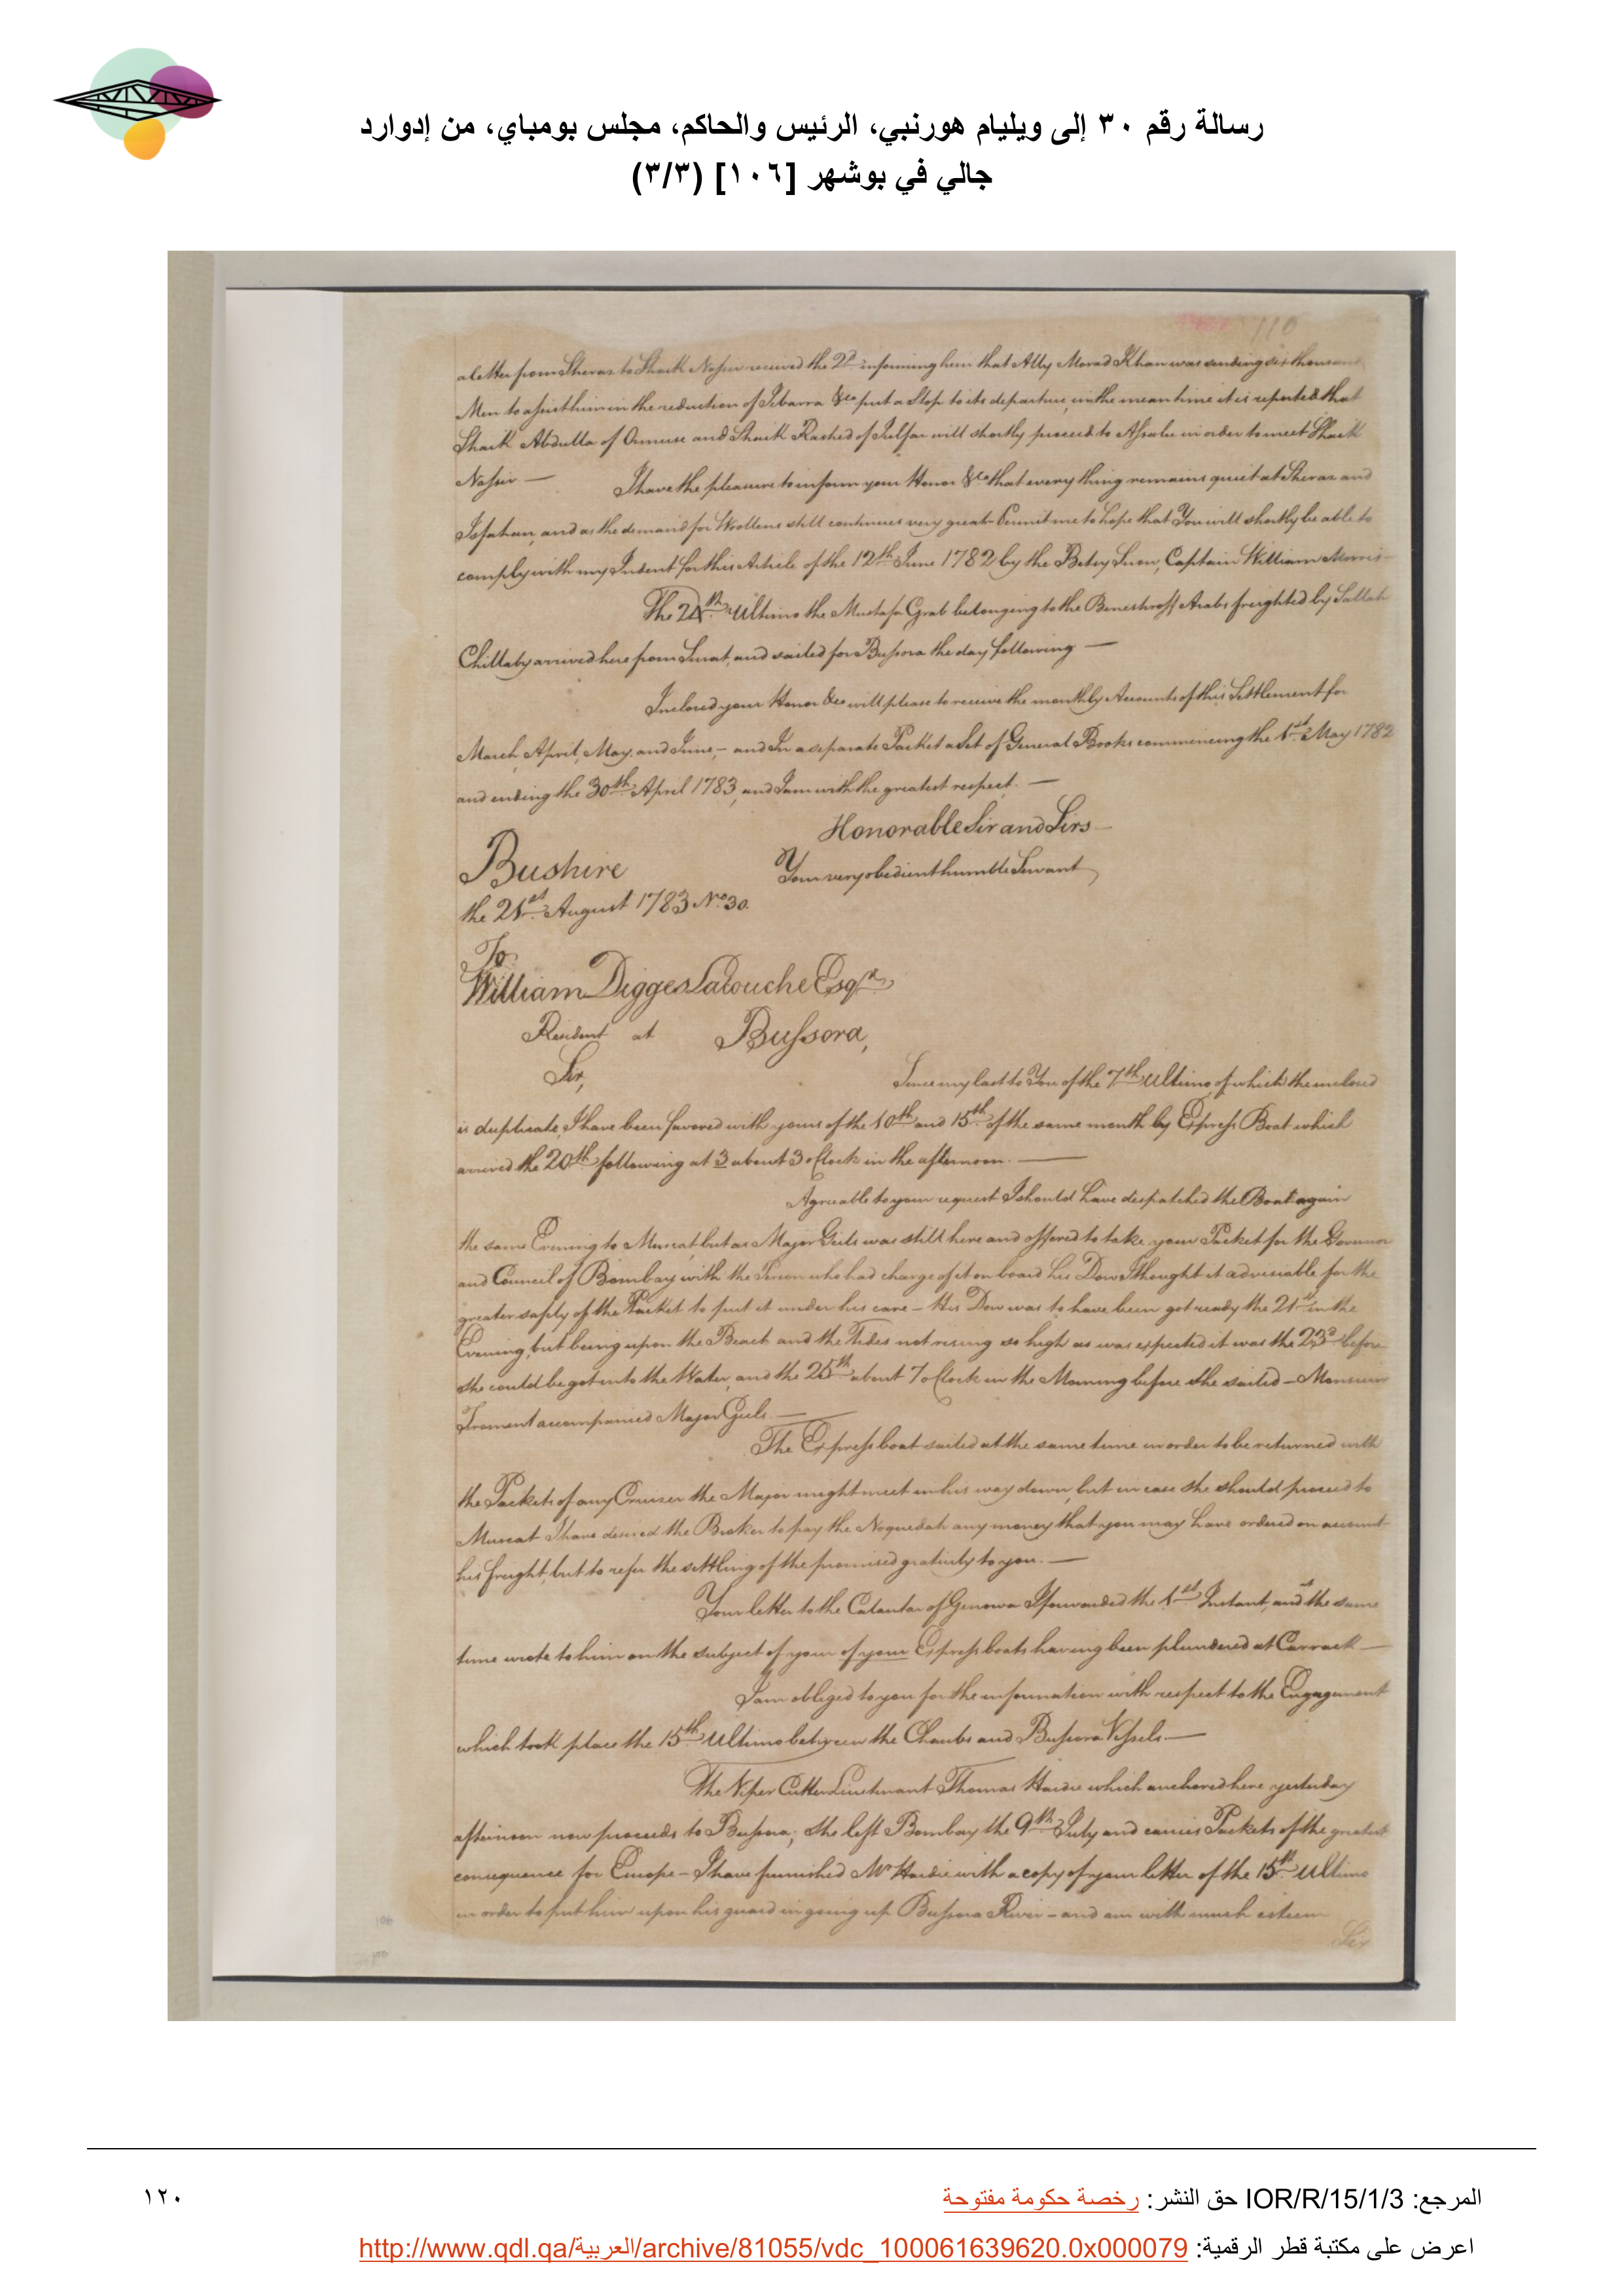 رسالة رقم ٣٠ إلى ويليام هورنبي، الرئيس والحاكم، مجلس بومباي، من إدوارد
جالي في بوشهر [١٠٦] (٣/٣)
110
a letter from Sheraz to Shaik Nassir received the 2d. informing him that Ally Morad Khan was sending six thousand
Men to assist him in the reduction of Zebarra &ca put a Stop to its departure, in the mean time it is reported that
Shaik Abdulla of Ormuse and Shaik Rashed of Julfar will shortly proceed to Assalu in order to meet Shaik
Nassir —
I have the pleasure to inform your Honor &ca that every thing remains quiet at Sheraz and
Isfahan, and as the demand for Woollens still continues very great Permit me to hope that You will shortly be able to
comply with my Indent for this Article of the 12th. June 1782 by the Betsy Snow, Captain William Morris
The 24th. Ultimo the Mustafa Grab belonging to the Arabs freighted by Sallah
Chillaby arrived here from Surat, and sailed for Bussora the day following —
Inclosed your Honor &ca will please to receive the monthly Accounts of this Settlement for
March, April, May, and June, – and In a separate Packet a Set of General Books commencing the 1st. May 1782
and ending the 30th. April 1783, and I am with the greatest respect. —
Honorable Sir and Sirs
Bushire
Your very obedient humble Servant
the 21st. August 1783 No. 30.
To
William Digges Latouche Esqr.
Resident at Bussora,
Sir,
Since my last to You of the 7th. Ultimo, of which the inclosed
is duplicate, I have been favored with yours of the 10th. and 15th. of the same month by Express Boat which
arrived the 20th. following at 3 about 3 oClock in the afternoon. —
Agreable to your request I should have despatched the Boat again
the same Evening to Muscat, but as Major Geils was still here and offered to take your Packet for the Governor
and Council of Bombay with the Person who had charge of it on board his Dow I thought it adviseable for the
greater safety of the Packet to put it under his care – His Dow was to have been got ready the 21st. in the
Evening, but being upon the Beach and the Tides not rising so high as was expected it was the 23d. before
she could be got into the Water, and the 25th. about 7 oClock in the Morning before she sailed – Monsieur
accompanied Major Geils. —
The Express boat sailed at the same time in order to be returned with
the Packets of any Cruizer the Major might meet in his way down, but in case she should proceed to
Muscat I have desired the Broker to pay the Noquedah any money that you may have ordered on account
his freight, but to refer the settling of the promised gratuity to you. —
Your letter to the Calantar of Genowa I forwarded the 1st. Instant, and at the same
time wrote to him on the subject of your of your Express boats having been plundered at Carrack —
I am obliged to you for the information with respect to the Engagement
which took place the 15th. Ultimo between the Chaubs and Bussora Vessels. —
The Viper Cutter Lieutenant Thomas Hardie which anchored here yesterday
afternoon now proceeds to Bussora, she left Bombay the 9th. July and carries Packets of the greatest
consequence for Europe – I have furnished Mr. Hardie with a copy of your letter of the 15th. Ultimo
in order to put him upon his guard in going up Bussora River – and am with much esteem
Sir
106
المرجع: IOR/R/15/1/3 حق النشر: رخصة حكومة مفتوحة
١٢٠
اعرض على مكتبة قطر الرقمية: http://www.qdl.qa/العربية/archive/81055/vdc_100061639620.0x000079